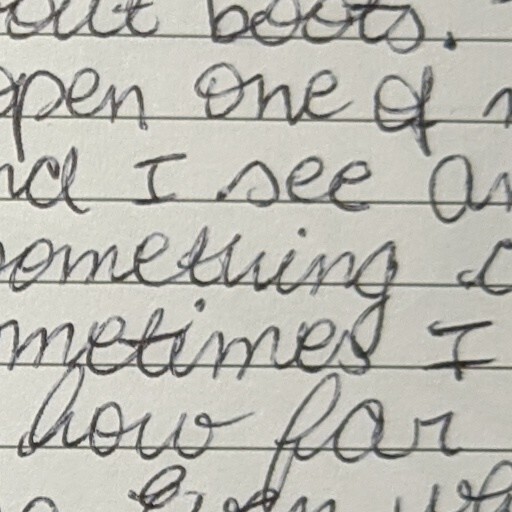 out boots.
open one of
nd I see a
something
metimes I
how far